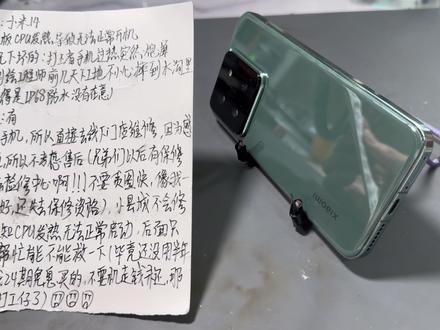 :小米14
板CPU发热,导致无法正常开机
况下坏的:打王者手机过热突然
给工程师前几天下工地不小心摔到水沟里
得是IP68防水没有在意)
:有
手机,所以直接去线下门店维修,因为
,所以不考虑售后(兄弟们以后有保修
去整修 啊!!!不要贪图快,像我一
好,还失去保修资格),小县城不会修
知CPU发热无法正常启动,后面只
帮忙看能不能救一下(毕竟还没用半年
24期免息买的,不要机走钱还在,那
打工仔了)
XIAOMI